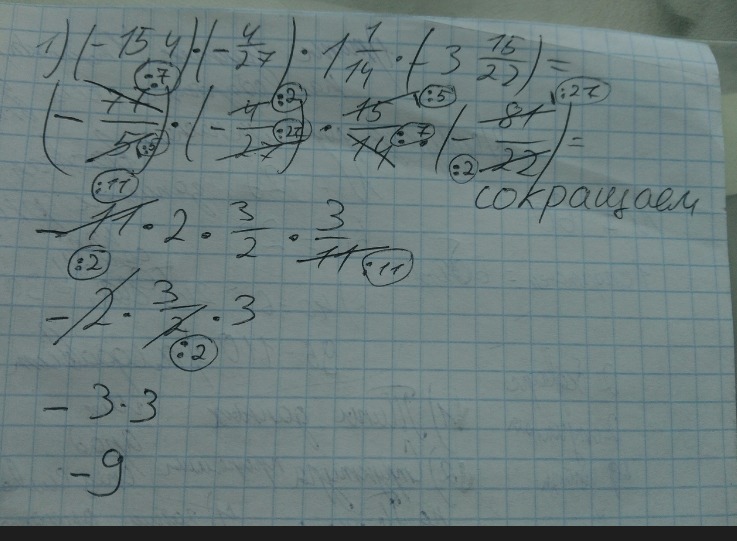 1) (-15,4)·(-4/27)·1 1/14·(-3 15/22)=
(-77/5)·(-4/27)·15/14·(-81/22)=
:7 :5 :2 :27 :5 :7 :27 :2
сокращаем
-11·2·3/2·3/11
:11 :11
-2·3/2·3
:2 :2
-3·3
-9